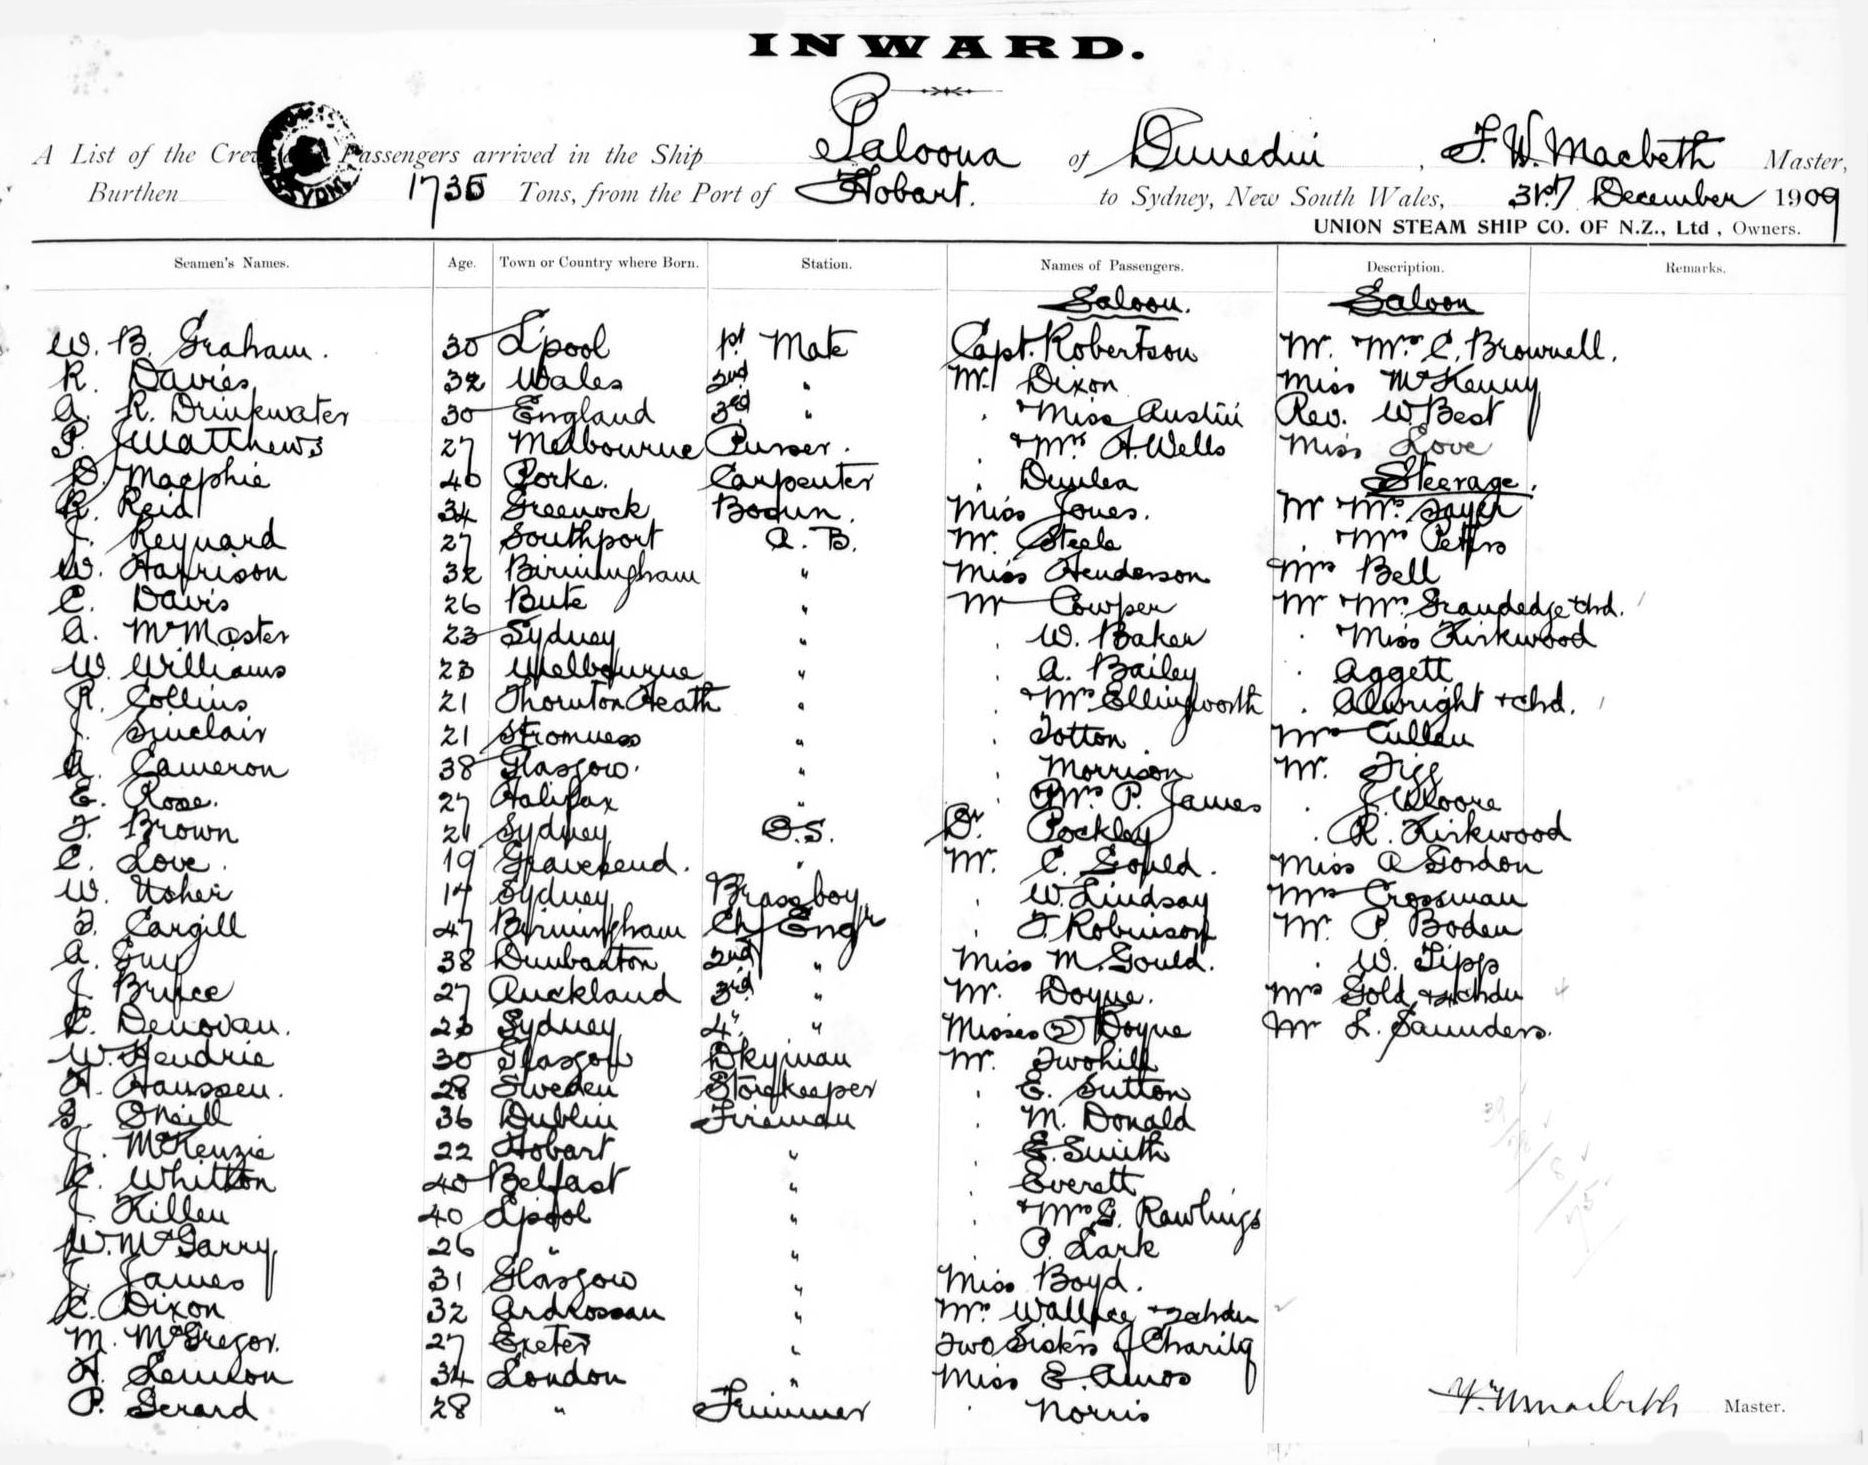 INWARD.
A List of the Crew and Passengers arrived in the Ship Paloona of Dunedin, F. W. Macbeth Master,
Burthen 1735 Tons, from the Port of Hobart. to Sydney, New South Wales, 31st December 1909
UNION STEAM SHIP CO. OF N.Z., Ltd, Owners.
Seamen's Names. Age. Town or Country where Born. Station. Names of Passengers. Description. Remarks.
Saloon. Saloon
W. B. Graham. 30 L'pool 1st Mate Capt. Robertson Mr. Mrs C. Brownell.
R. Davies 32 Wales 2nd " Mr. Dixon Miss McKenny
A. R. Drinkwater 30 England 3rd " . Miss Austin Rev. W Best
P. J Matthews 27 Melbourne Purser. . + Mrs A. Wells Miss Love
D. Macphie 40 Carpenter . Dunlea Steerage.
R. Reid 34 Greenock Bosun. Miss Jones. Mr + Mrs Sayer
J. Reynard 27 Southport A. B. Mr. Steele . + Mrs Petters
W. Harrison 32 Birmingham " Miss Henderson Mrs Bell
C. Davis 26 Bute " Mr Cowper Mr + Mrs Grandedge + chd.
A. McMaster 23 Sydney " . W. Baker . + Miss Kirkwood
W. Williams 23 Melbourne " . A. Bailey . Aggett
R. Collins 21 Thornton Heath " . + Mrs Ellingworth . Allwright + chd.
J. Sinclair 21 Stromness " . Totton Mrs Cullen
A. Cameron 38 Glasgow. " . Morrison Mr. Figg
E. Rose. 27 Halifax " . + Mrs P. James . J. Moore
F. Brown 21 Sydney O.S. Dr. Pockley . R. Kirkwood
C. Love. 19 Gravesend. " Mr. C. Gould. Miss A Gordon
W. Usher 17 Sydney Brassboy . W. Lindsay Mrs Crossman
Cargill 47 Birmingham Ch Engr . F. Robinson Mr. P. Boden
A. Guy 38 Dumbarton 2nd " Miss M. Gould. . W. Tipp
J. Bruce 27 Auckland 3rd " Mr. Doyne. Mrs Gold + 4 chdn
C. Denovan. 23 Sydney 4" " Misses (2) Doyne Mr L. Saunders.
W. Hendrie 30 Glasgow Dkyman Mr. Twohill
H. Hanssen. 28 Sweden Storekeeper . E. Sutton
ONeill 36 Dublin Fireman . M. Donald
J. McKenzie 22 Hobart " . E. Smith
Whitton 40 Belfast " . Everett
J. Killen 40 L'pool " . + Mrs G. Rawlings
W. McGarry 26 " " . P. Lark
J. James 31 Glasgow " Miss Boyd.
C. Dixon 32 Ardrossan " Mrs Wallace + 2 chdn
M. McGregor. 27 Exeter " Two Sisters of Charity
H. Lennon 34 London " Miss E. Amos
P. Gerard 28 " Trimmer . Norris
F. W Macbeth Master.